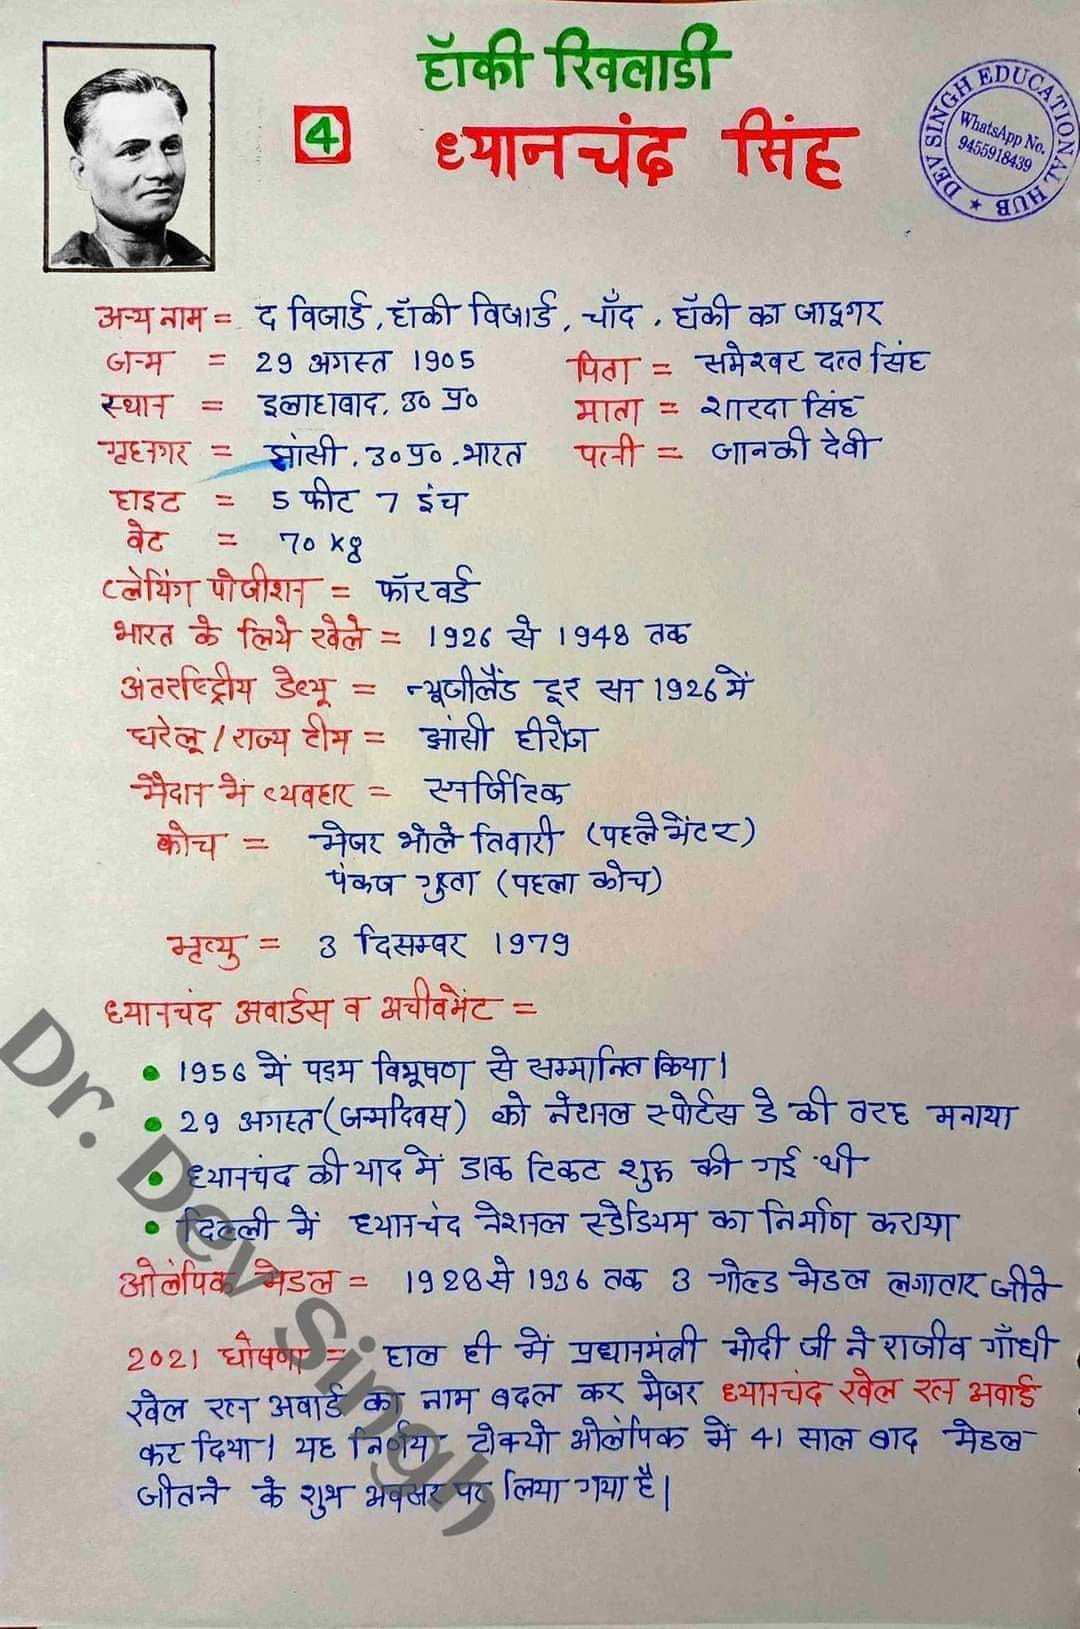 हॉकी खिलाडी
4 ध्यानचंद सिंह
DEV SINGH EDUCATIONAL HUB
WhatsApp No.
9455918439
अन्य नाम = द विजार्ड, हॉकी विजार्ड, चाँद, हॅाकी का जादूगर
जन्म = 29 अगस्त 1905 पिता = समेश्वर दत्त सिंह
स्थान = इलाहाबाद, उ० प्र० माता = शारदा सिंह
गृहनगर = झांसी, उ०प्र०, भारत पत्नी = जानकी देवी
हाइट = 5 फीट 7 इंच
वेट = 70 Kg
प्लेयिंग पोजीशन = फॉरवर्ड
भारत के लिये खेले = 1926 से 1948 तक
अंतर्राष्ट्रीय डेब्यू = न्यूजीलैंड टूर सन 1926 में
घरेलू / राज्य टीम = झांसी हीरोज
मैदान में व्यवहार = एनर्जिटिक
कोच = मेजर भोले तिवारी (पहले मेंटर)
पंकज गुप्ता (पहला कोच)
मृत्यु = 3 दिसम्बर 1979
ध्यानचंद अवार्डस व अचीवमेंट =
• 1956 में पद्म विभूषण से सम्मानित किया।
• 29 अगस्त (जन्मदिवस) को नेशनल स्पोर्टस डे की तरह मनाया
• ध्यानचंद की याद में डाक टिकट शुरू की गई थी
• दिल्ली में ध्यानचंद नेशनल स्टेडियम का निर्माण कराया
ओलंपिक मेडल = 1928 से 1936 तक 3 गोल्ड मेडल लगातार जीते
2021 घोषणा = हाल ही में प्रधानमंत्री मोदी जी ने राजीव गाँधी
खेल रत्न अवार्ड का नाम बदल कर मेजर ध्यानचंद खेल रत्न अवार्ड
कर दिया। यह निर्णय टोक्यो ओलंपिक में 41 साल बाद मेडल
जीतने के शुभ अवसर पर लिया गया है।
Dr. Dev Singh